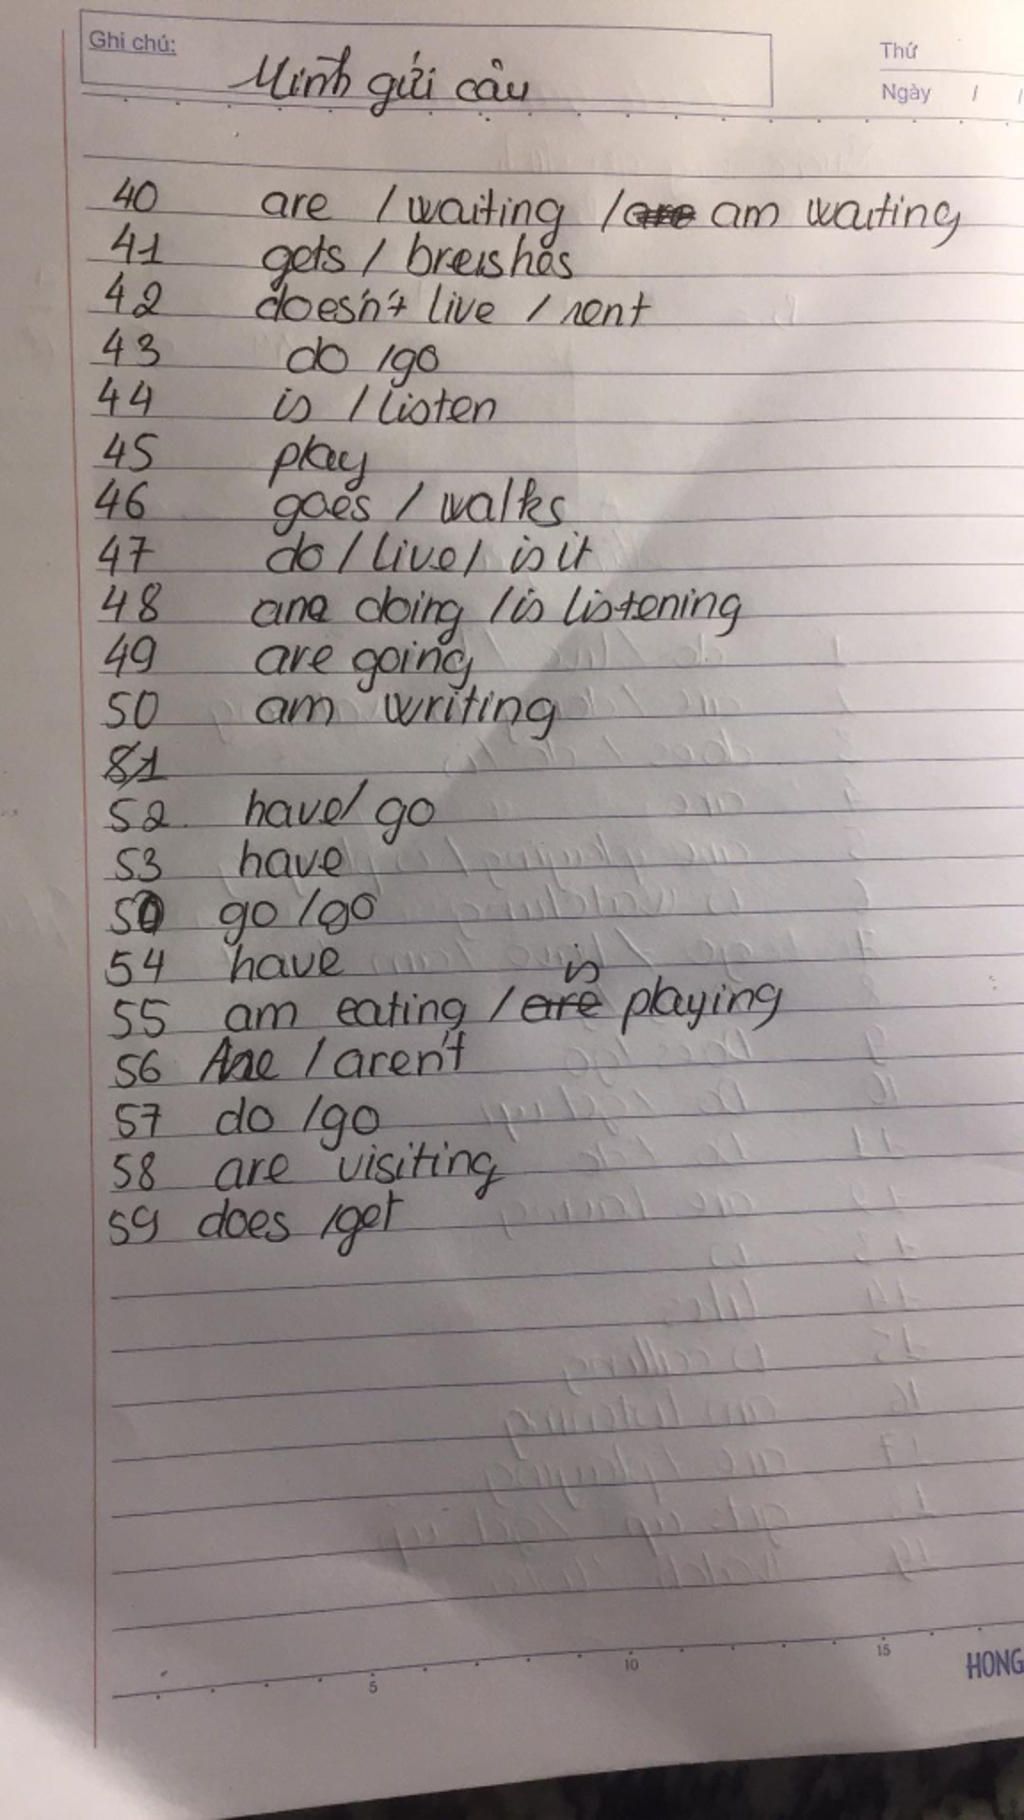 Ghi chú:
Thứ
Mình gửi câu
Ngày / /
40 are / waiting / are am waiting
41 gets / breushes
42 doesn't live / rent
43 do / go
44 is / listen
45 play
46 goes / walks
47 do / live / is it
48 are doing / is listening
49 are going
50 am writing
51
52 have / go
53 have
50 go / go
54 have
is
55 am eating / are playing
56 Are / aren't
57 do / go
58 are visiting
59 does / get
5 10 15
HONG